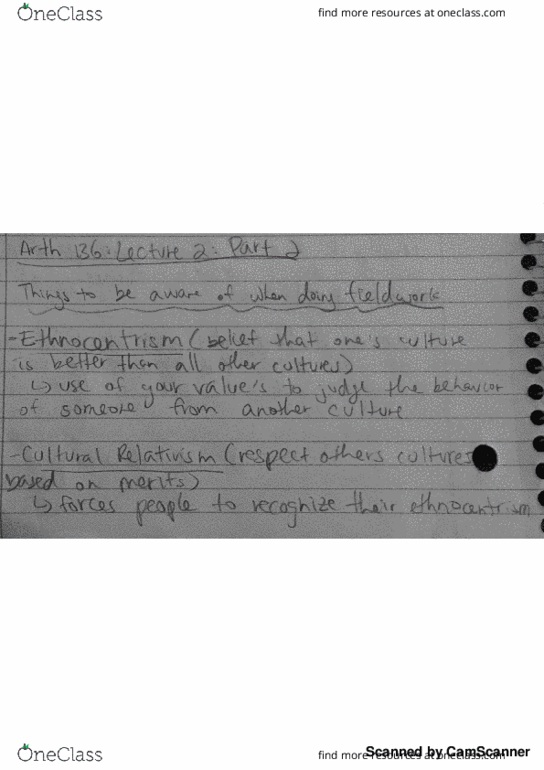 OneClass
find more resources at oneclass.com
Arth 136: Lecture 2: Part 2
Things to be aware of when doing fieldwork
-Ethnocentrism (belief that one's culture
is better than all other cultures)
↳ use of your value's to judge the behavior
of someone from another culture
-Cultural Relativism (respect others cultures
based on merits)
↳ forces people to recognize their ethnocentrism
OneClass
find more resources at oneclass.com
Scanned by CamScanner